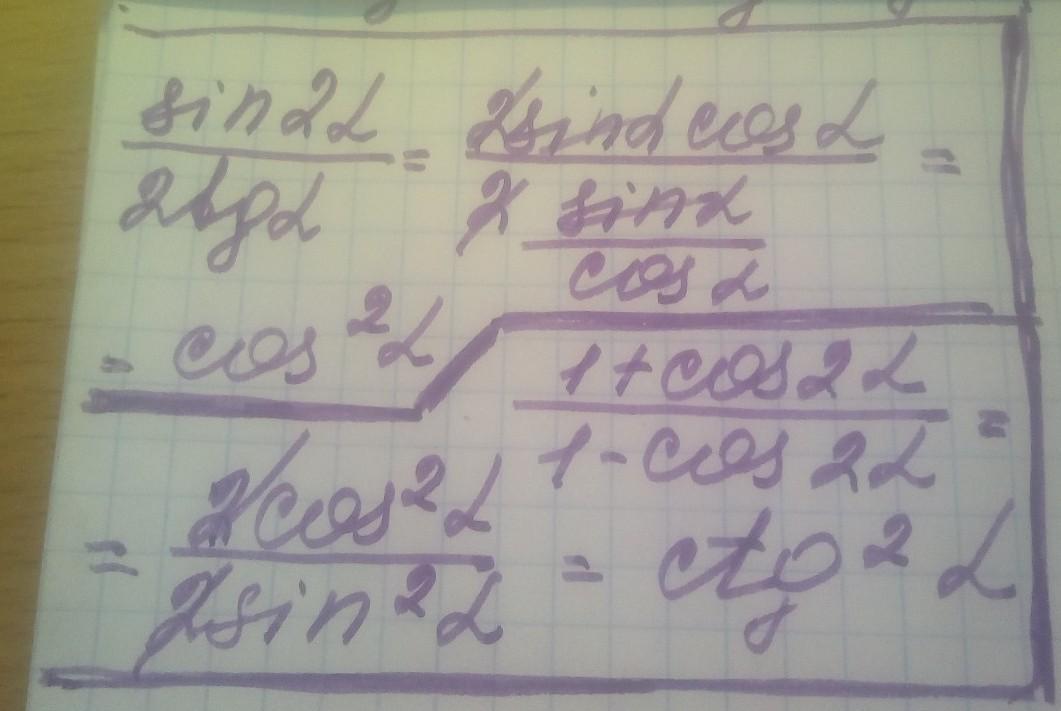 sin2α / 2tgα = 2sinα cosα / 2 sinα/cosα =
= cos²α
1+cos2α / 1-cos2α =
= 2cos²α / 2sin²α = ctg²α